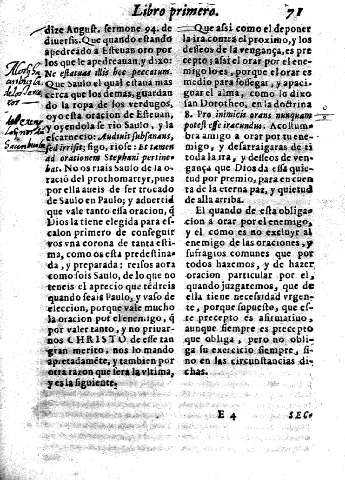 Libro primero. 71
dize August. sermone 94. de
diuersis. Que quando estando
apedreado a Esteuan oro por
los que le apedreauan, y dixo:
Ne statuas illis hoc peccatum.
Que Saulo el qual estaua mas
cerca que los demas, guardan
do la ropa de los verdugos,
oyo esta oracion de Esteuan,
y oyendola se rio Saulo, y la
escarnecio: Audiuit subsanans,
sed irrisit; sigo, riose: Et tamen
ad orationem Stephani pertine-
bat. No os riais Saulo de la o-
raciõ del prothomartyr, pues
por ella aueis de ser trocado
de Saulo en Paulo; y aduertid
que vale tanto essa oracion, q̃
Dios la tiene elegida para es-
calon primero de conseguir
vos vna corona de tanta esti-
ma, como os esta predestina-
da, y preparada; reisos aora
como sois Saulo, de lo que no
teneis el aprecio que tẽdreis
quando seais Paulo, y vaso de
eleccion, porque vale mucho
la oracion por el enemigo, q̃
por valer tanto, y no priuar-
nos CHRISTO de esse tan
gran merito, nos lo mando
apretadamẽte, y tambien por
otra razon que sera la vltima,
y es la siguiente.
Que assi como el deponer
la ira contra el proximo, y los
desseos de la vengança, es pre-
cepto; assi el orar por el enemi-
go lo es, porque el orar es
medio para sossegar, y apaci-
guar el alma, como lo dixo
san Dorotheo, en la doctrina
8. Pro inimicis orans nunquam
potest esse iracundus. Acostum
bra amigo a orar por tu ene-
migo, y desarraigaras de ti
toda la ira, y desseos de ven-
gança que Dios da essa quie-
tud por premio, para en cuen-
ta de la eterna paz, y quietud
de alla arriba.
El quando de esta obliga-
cion a orar por el enemigo,
y el como es no excluyr al
enemigo de las oraciones, y
sufragios comunes que por
todos hazemos, y de hazer
oracion particular por el,
quando juzgaremos, que de
ella tiene necessidad vrgen-
te, porque supuesto, que es-
te precepto es afirmatiuo,
aunque siempre es precepto
que obliga, pero no obli-
ga su exercicio siempre, si-
no en las circunstancias di-
chas.
E 4 SEG-